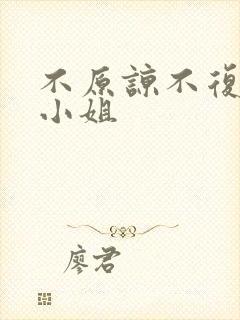 不原諒不復
小姐
廖君